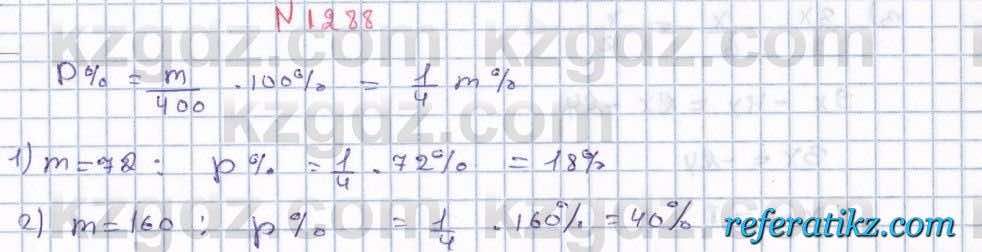 N 1288
kzgdz.com kzgdz.com kzgdz.com
p% = m/400 · 100% = 1/4 m%
kzgdz.com
1) m = 72 : p% = 1/4 · 72% = 18%
kzgdz.com kzgdz.com kzgdz.com
2) m = 160 : p% = 1/4 · 160% = 40%
referatikz.com